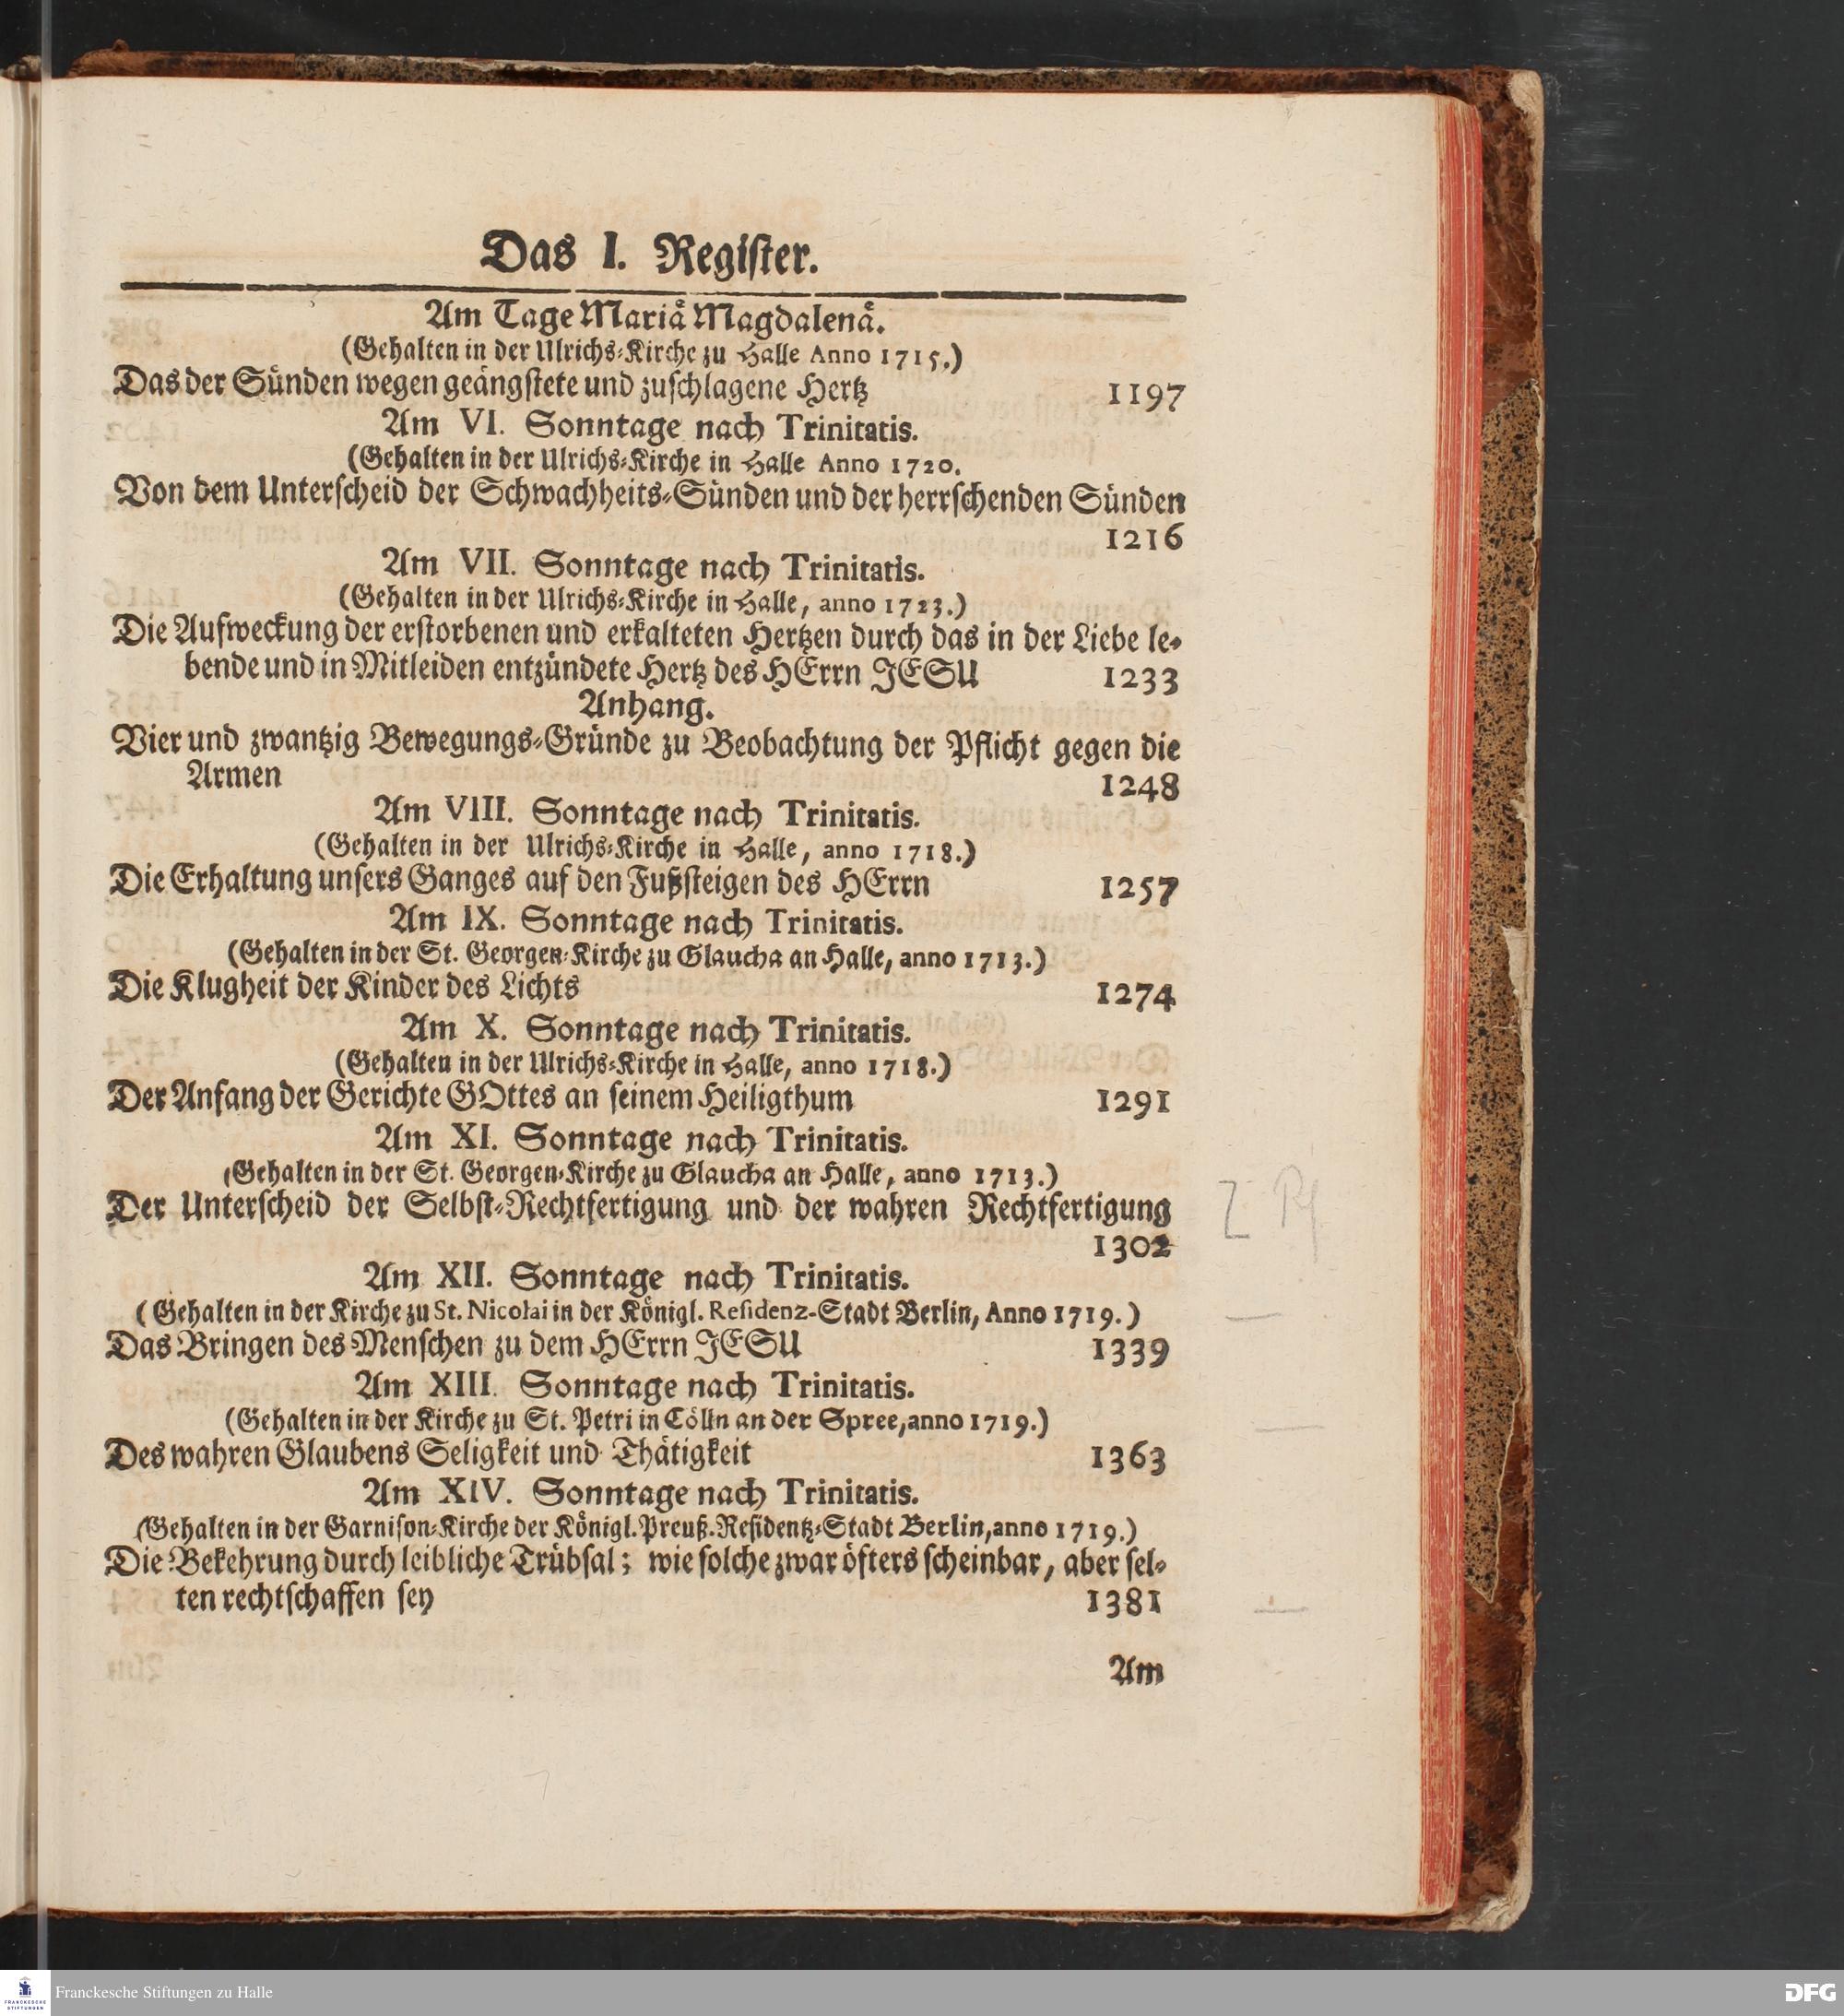 Das I. Regiſter.
Am Tage Mariä Magdalenä.
(Gehalten in der Ulrichs-Kirche zu Halle Anno 1715.)
Das der Sünden wegen geängſtete und zuſchlagene Hertz 1197
Am VI. Sonntage nach Trinitatis.
(Gehalten in der Ulrichs-Kirche in Halle Anno 1720.
Von dem Unterſcheid der Schwachheits-Sünden und der herrſchenden Sünden
1216
Am VII. Sonntage nach Trinitatis.
(Gehalten in der Ulrichs-Kirche in Halle, anno 1723.)
Die Aufweckung der erſtorbenen und erkalteten Hertzen durch das in der Liebe le-
bende und in Mitleiden entzündete Hertz des HErrn JESU 1233
Anhang.
Vier und zwantzig Bewegungs-Gründe zu Beobachtung der Pflicht gegen die
Armen 1248
Am VIII. Sonntage nach Trinitatis.
(Gehalten in der Ulrichs-Kirche in Halle, anno 1718.)
Die Erhaltung unſers Ganges auf den Fußſteigen des HErrn 1257
Am IX. Sonntage nach Trinitatis.
(Gehalten in der St. Georgen-Kirche zu Glaucha an Halle, anno 1713.)
Die Klugheit der Kinder des Lichts 1274
Am X. Sonntage nach Trinitatis.
(Gehalten in der Ulrichs-Kirche in Halle, anno 1718.)
Der Anfang der Gerichte GOttes an ſeinem Heiligthum 1291
Am XI. Sonntage nach Trinitatis.
(Gehalten in der St. Georgen-Kirche zu Glaucha an Halle, anno 1713.)
Der Unterſcheid der Selbſt-Rechtfertigung und der wahren Rechtfertigung
1302
Am XII. Sonntage nach Trinitatis.
(Gehalten in der Kirche zu St. Nicolai in der Königl. Reſidenz-Stadt Berlin, Anno 1719.)
Das Bringen des Menſchen zu dem HErrn JESU 1339
Am XIII. Sonntage nach Trinitatis.
(Gehalten in der Kirche zu St. Petri in Cölln an der Spree, anno 1719.)
Des wahren Glaubens Seligkeit und Thätigkeit 1363
Am XIV. Sonntage nach Trinitatis.
(Gehalten in der Garniſon-Kirche der Königl. Preuß. Reſidentz-Stadt Berlin, anno 1719.)
Die Bekehrung durch leibliche Trübſal; wie ſolche zwar öfters ſcheinbar, aber ſel-
ten rechtſchaffen ſey 1381
Am
FRANCKESCHE STIFTUNGEN
Franckesche Stiftungen zu Halle
DFG